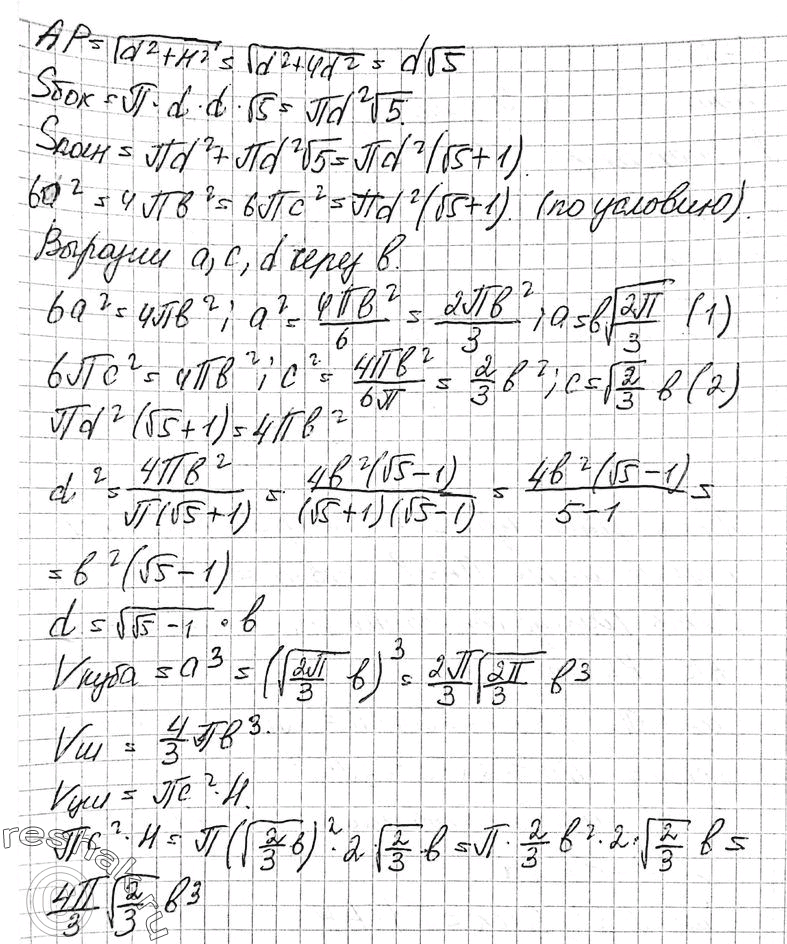 AP = √(d² + H²) = √(d² + 4d²) = d√5
Sбок = π · d · d · √5 = πd²√5.
Sполн = πd² + πd²√5 = πd²(√5 + 1).
6a² = 4πв² = 6πc² = πd²(√5+1). (по условию).
Выразим a, c, d через в.
6a² = 4πв²; a² = 4πв²/6 = 2πв²/3; a = в√(2π/3) (1)
6πc² = 4πв²; c² = 4πв²/6π = 2/3 в²; c = √(2/3) в (2)
πd²(√5+1) = 4πв²
d² = 4πв²/(π(√5+1)) = 4в²(√5-1)/((√5+1)(√5-1)) = 4в²(√5-1)/(5-1) =
= в²(√5-1)
d = √(√5-1) · в
Vкуба = a³ = (√(2π/3) в)³ = 2π/3 √(2π/3) в³
Vш = 4/3 πв³.
Vцил = πc² · H.
πc² · H = π(√(2/3) в)² · 2 · √(2/3) · в = π · 2/3 в² · 2 · √(2/3) в =
4π/3 √(2/3) в³
reshak.ru